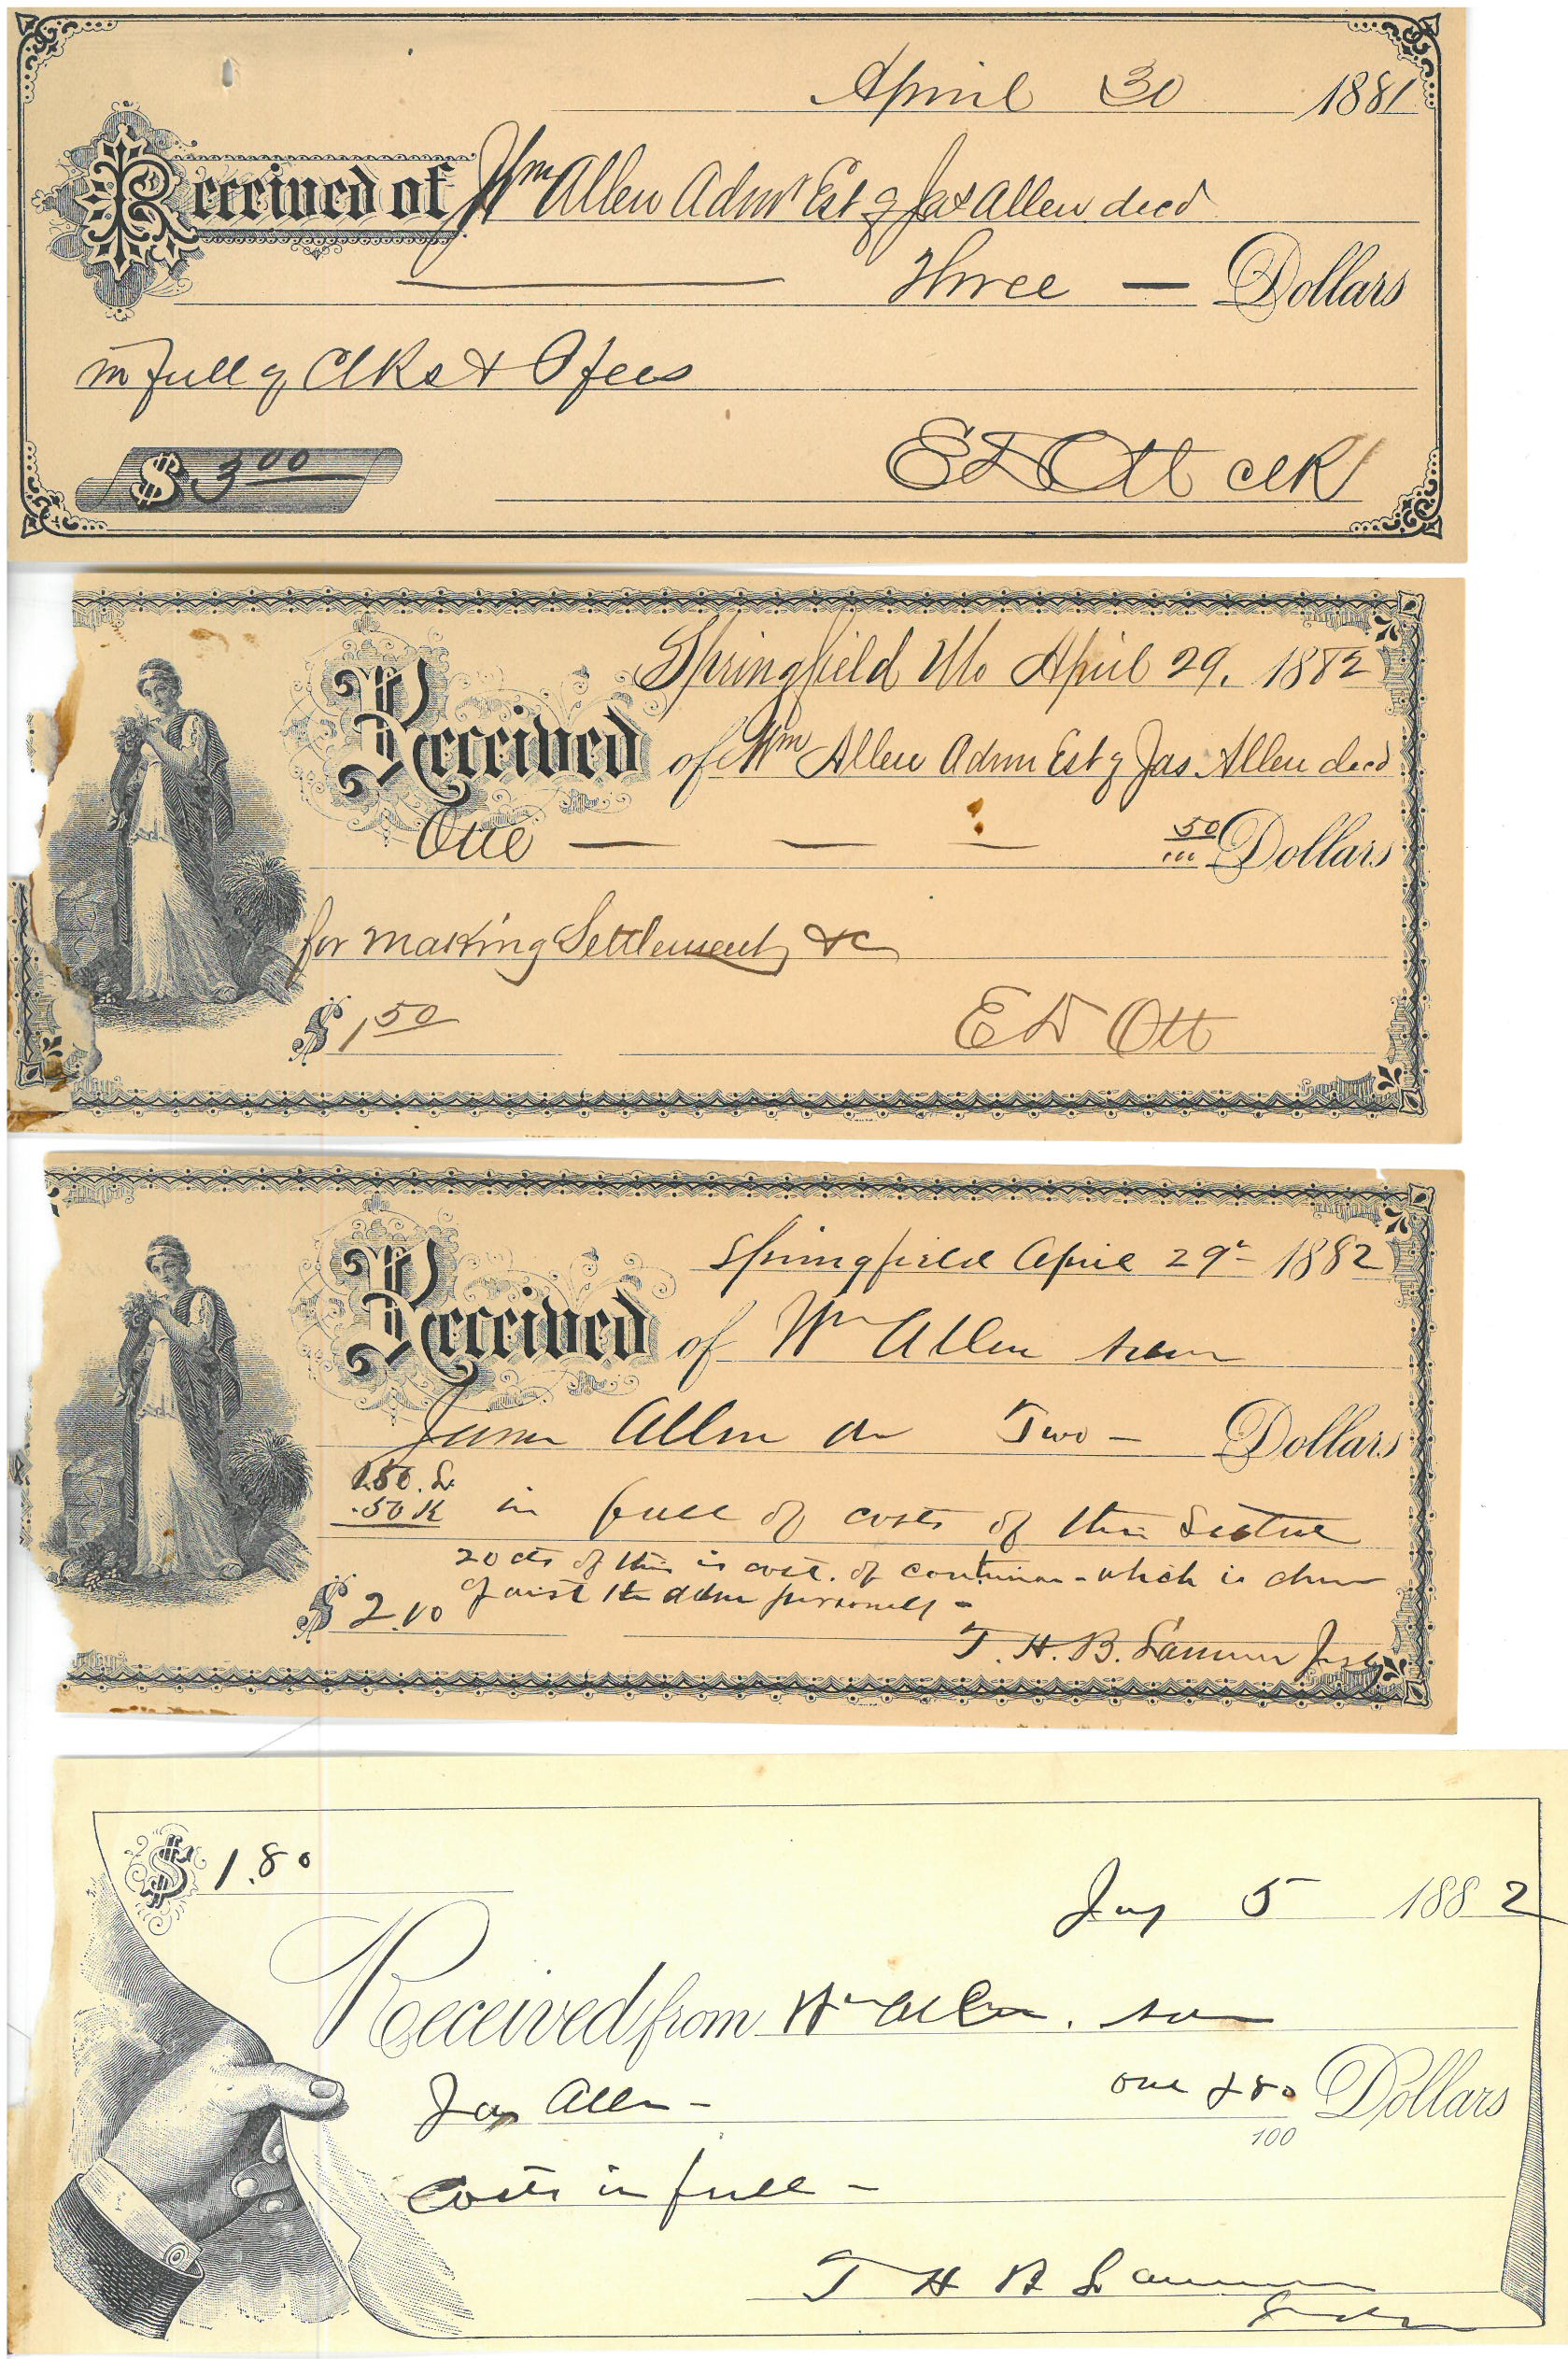 April 30 1881
Received of Wm Allen Admr Est of Jas Allen decd
Three — Dollars
in full of Clks & P fees
$ 3 00
E D Ott clk
Springfield Mo April 29, 1882
Received of Wm Allen Admr Est of Jas Allen decd
One — — — 50/100 Dollars
for making Settlement &c
$ 1 50
E D Ott
Springfield April 29 1882
Received of Wm Allen
James Allen Two — Dollars
1.50.
.50 in full of costs of this
20 cts of this is cost. of - which is
the personally -
$ 2.10
T. H. B.
$ 1.80
5 1882
Received from Wm Allen.
Jas Allen - one & 80/100 Dollars
Costs in full -
T H B